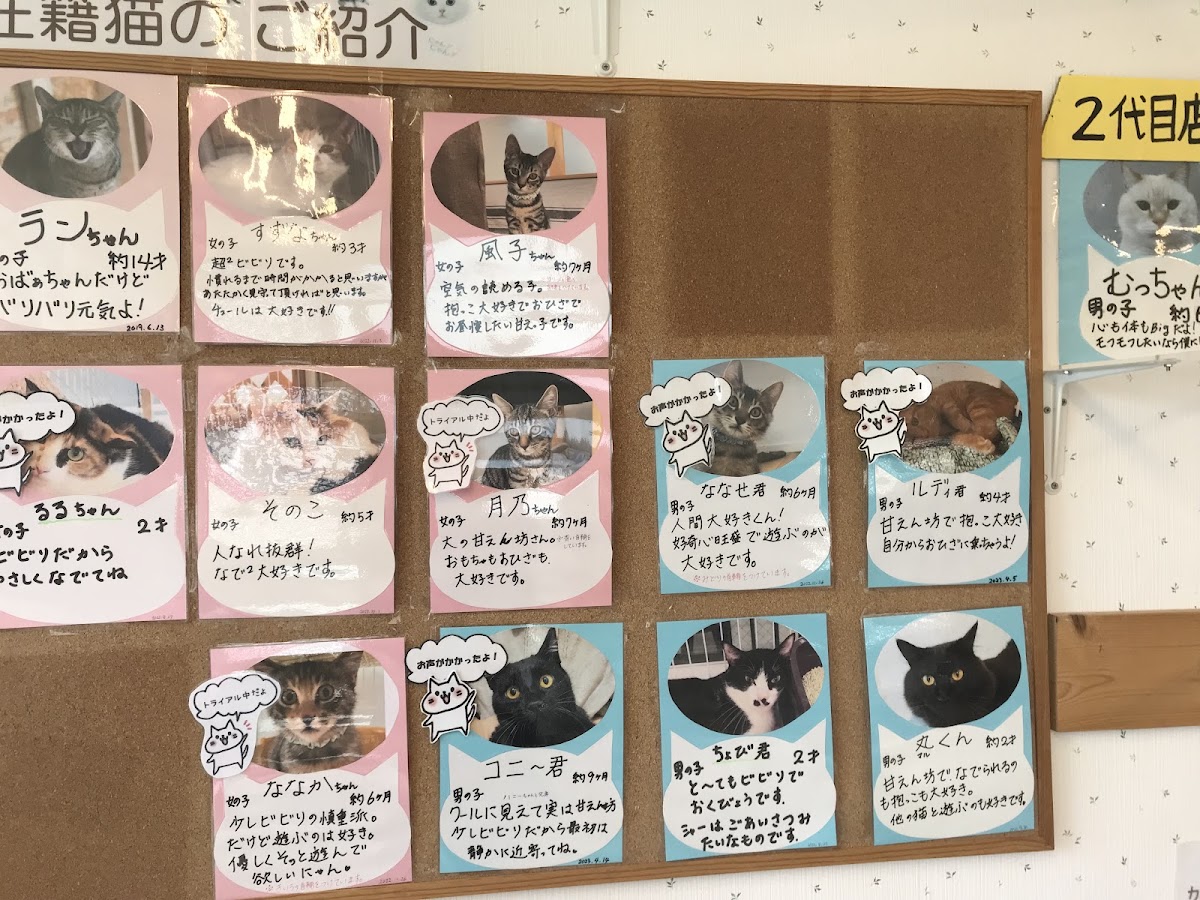 在籍猫のご紹介
ランちゃん
の子 約14才
おばぁちゃんだけど
バリバリ元気よ!
2019.6.13
すずなちゃん
女の子 約3才
超²ビビリです。
慣れるまで時間がかかると思いますが
あたたかく見守って頂ければと思います。
チュールは大好きです!!
風子ちゃん
女の子 約7ヶ月
空気の読める子。
抱っこ大好きでおひざで
お昼寝したい甘えっ子です。
2代目店
むっちゃん
男の子 約
心も体もBigだよ!
モフモフしたいなら僕に
声がかかったよ!
るるちゃん
の子 2才
ビビリだから
やさしくなでてね
そのこ
女の子 約5才
人なれ抜群!
なで²大好きです。
トライアル中だよ
月乃ちゃん
女の子 約7ヶ月
大の甘えん坊さん。
おもちゃもおひざも
大好きです。
お声がかかったよ!
ななせ君
男の子 約6ヶ月
人間大好きくん!
好奇心旺盛で遊ぶのが
大好きです。
お声がかかったよ!
ルディ君
男の子 約4才
甘えん坊で抱っこ大好き
自分からおひざに乗っちゃうよ!
2023.4.5
トライアル中だよ
ななかちゃん
女の子 約6ヶ月
少しビビリの慎重派。
だけど遊ぶのは好き。
優しくそっと遊んで
欲しいにゃん。
お声がかかったよ!
コニ〜君
男の子 約9ヶ月
クールに見えて実は甘えん坊
少しビビリだから最初は
静かに近寄ってね。
2023.4.14
ちょび君
男の子 2才
と〜てもビビリで
おくびょうです。
シャーはごあいさつみ
たいなものです。
丸くん
マル
男の子 約2才
甘えん坊でなでられるの
も抱っこも大好き。
他の猫と遊ぶのも好きです。